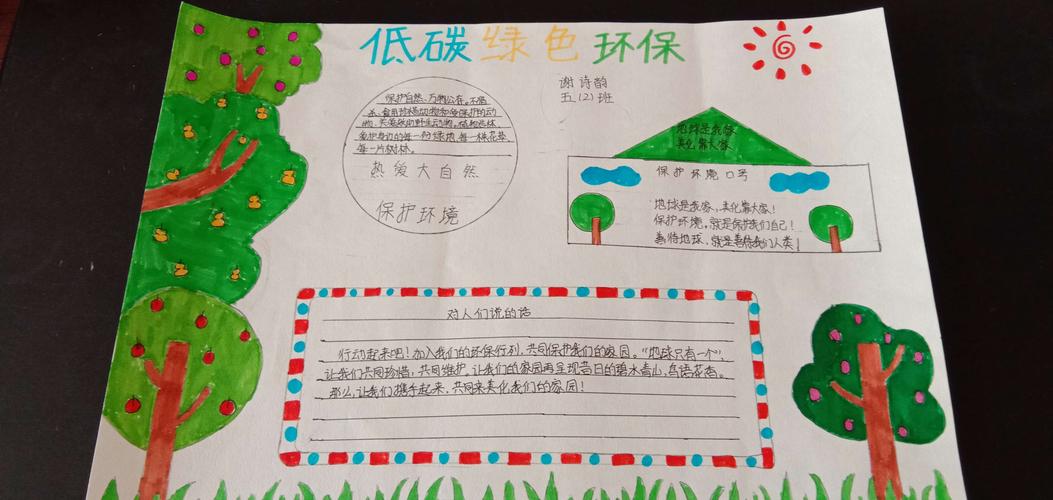 低碳绿色环保
谢诗韵
五(2)班
保护自然、万物公存。不猎
杀、食用珍稀动物和受保护的动
物、关爱我的野生动物。植树造林
爱护身边的每一块绿地、每一株花草
每一片树林。
热爱大自然
保护环境
地球是我家
美化靠大家
保护环境口号
地球是我家,美化靠大家!
保护环境,就是保护我们自己!
善待地球,就是善待我们人类!
对人们说的话
行动起来吧!加入我们的环保行列,共同保护我们的家园。“地球只有一个”,
让我们共同珍惜,共同维护,让我们的家园再呈现昔日的碧水青山,鸟语花香。
那么,让我们携手起来,共同来美化我们的家园!